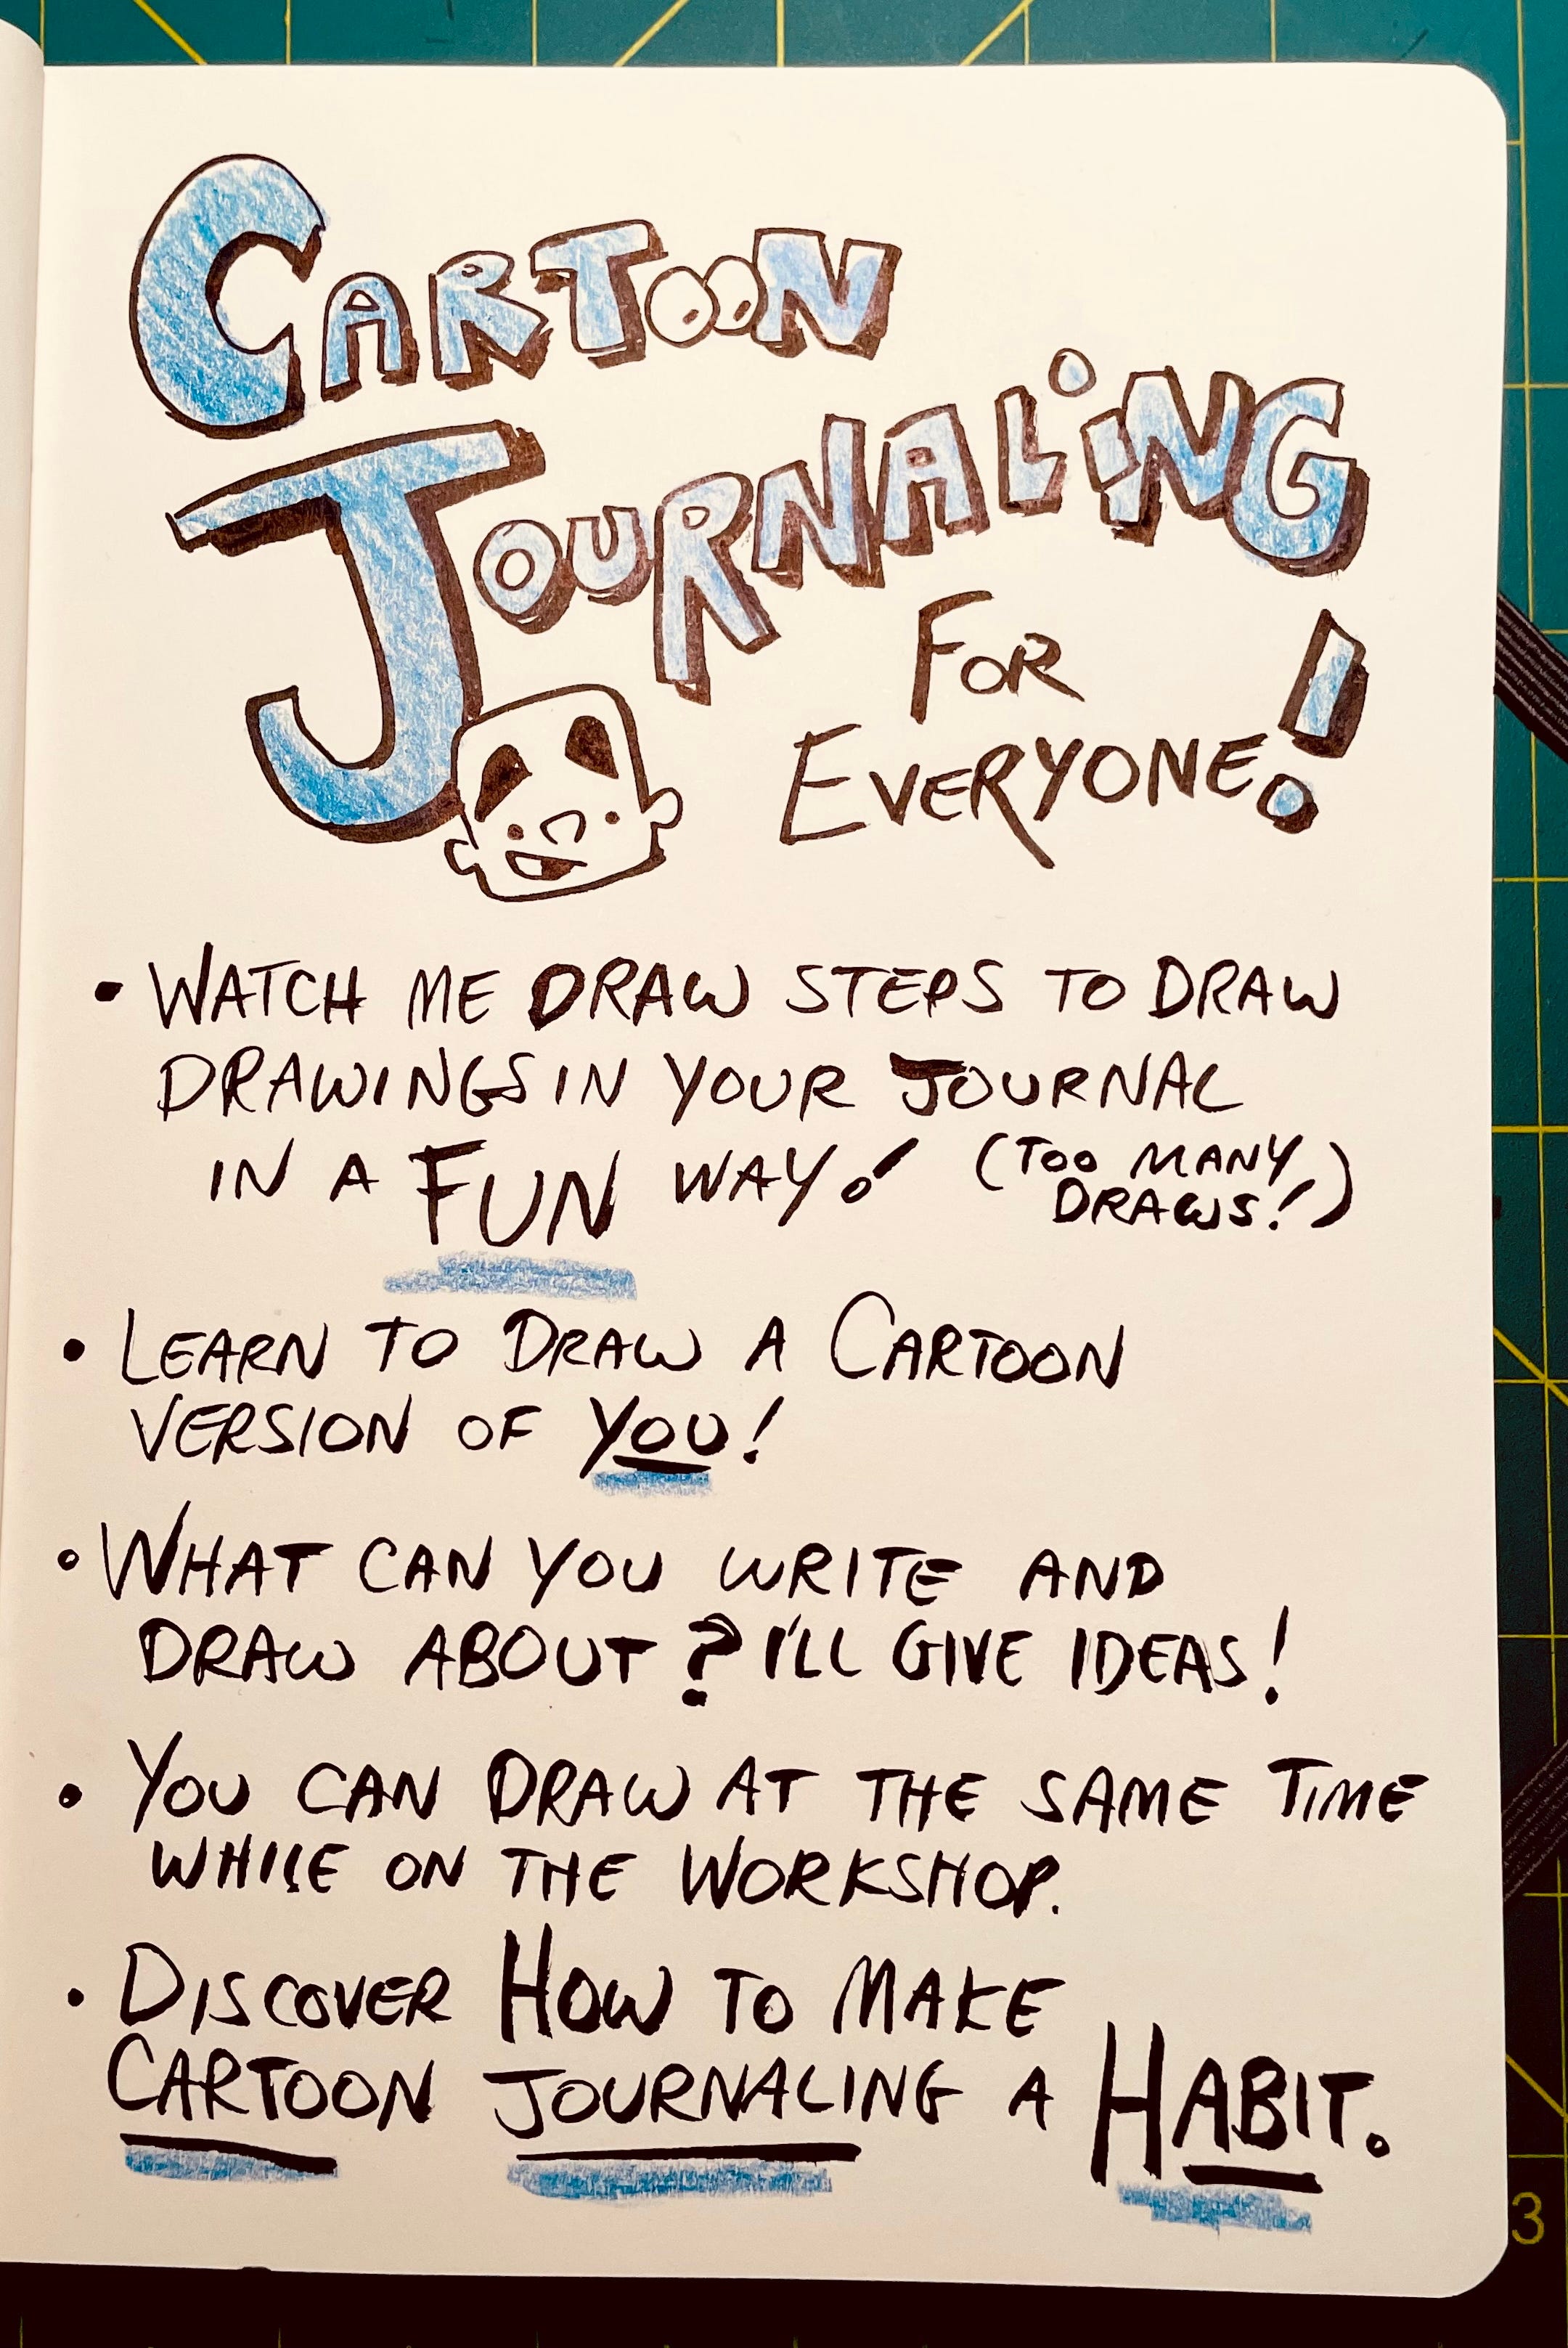 CARTOON
JOURNALiNG
FOR
EVERYONE!
• WATCH ME DRAW STEPS TO DRAW
DRAWINGS IN YOUR JOURNAL
IN A FUN WAY! (TOO MANY
DRAWS!)
• LEARN TO DRAW A CARTOON
VERSION OF YOU!
• WHAT CAN YOU WRITE AND
DRAW ABOUT? I'LL GIVE IDEAS!
• YOU CAN DRAW AT THE SAME TIME
WHILE ON THE WORKSHOP.
• DISCOVER HOW TO MAKE
CARTOON JOURNALING A HABIT.
3